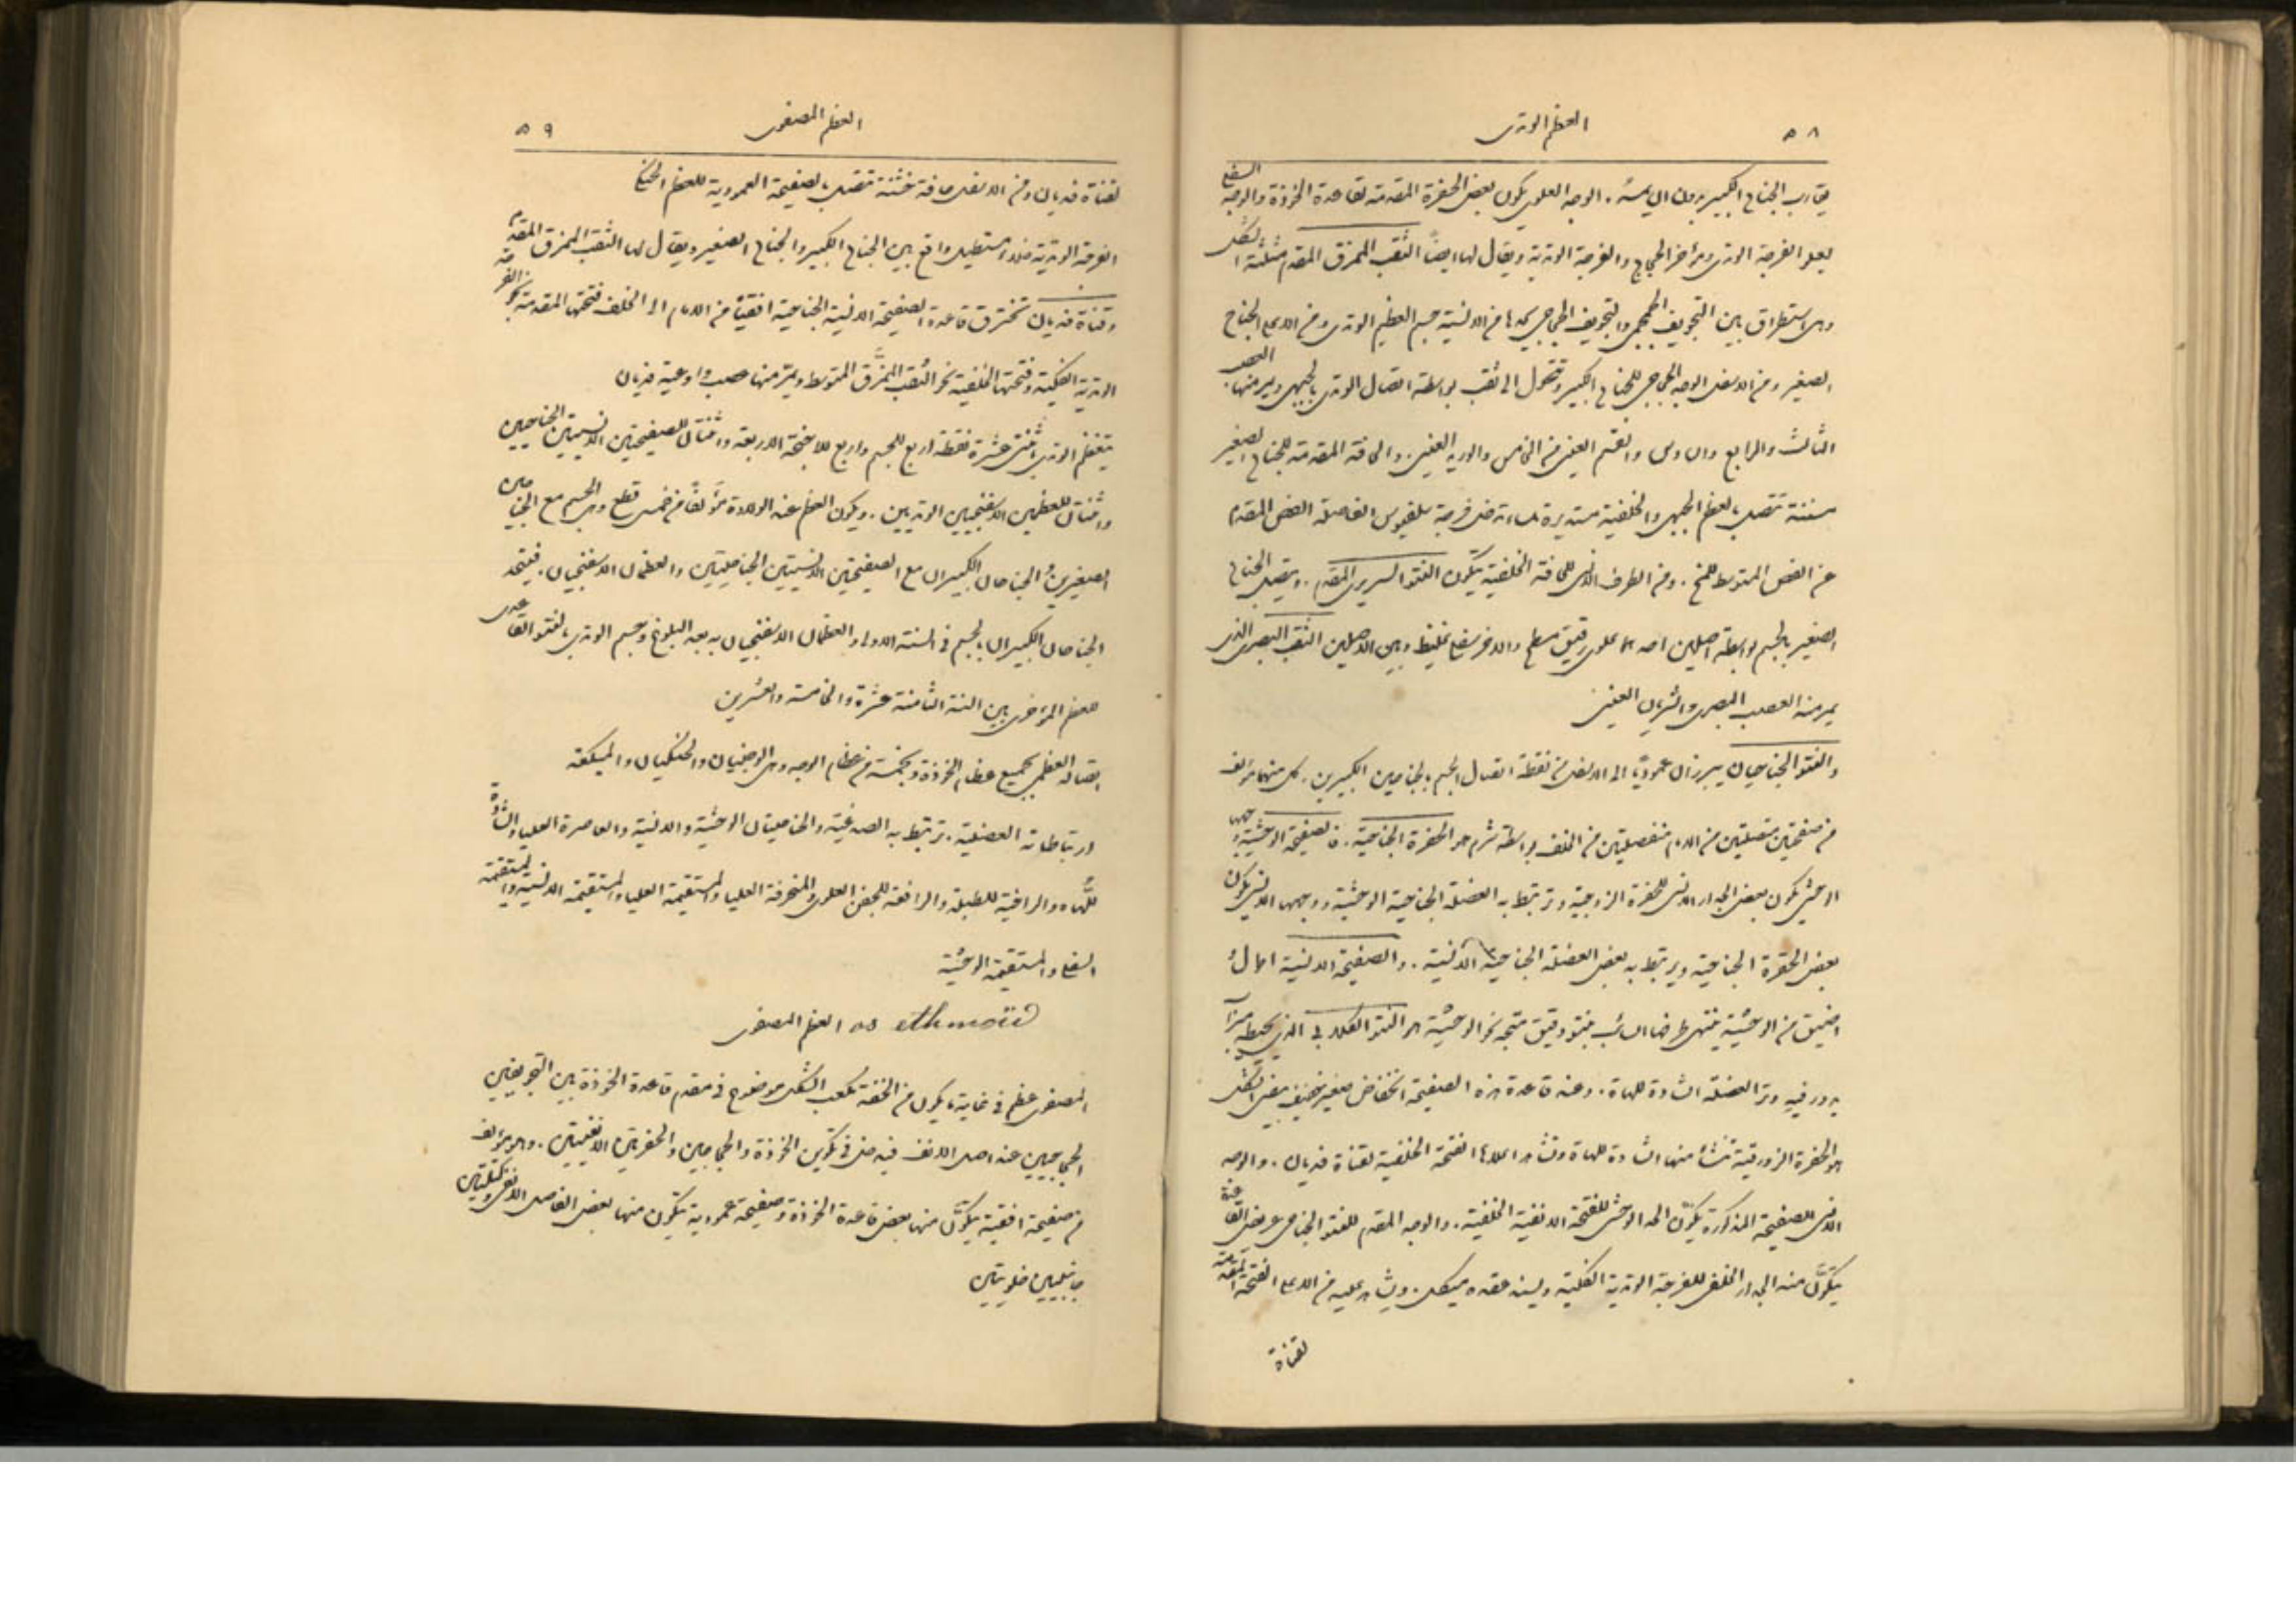 ٥٨
العظم الوتدى
يقارب الجناح الكبير بدون ان يمسه. الوجه العلوى يكون بعض الحفرة المقدمة لقاعدة الخوذة والوجه السفلى
يعلو الفرجة الوتدى ومؤخر الحجاج والفرجة الوتدية ويقال لها ايضاً الثقب الممزق المقدم مثلثة الشكل
وهى استطراق بين التجويف الجمجمى والتجويف الحجاجى يحدها من الانسية جسم العظم الوتدى ومن الاعلى الجناح
الصغير ومن الاسفل الوجه الحجاجى للجناح الكبير وتتحول الى ثقب بواسطة اتصال الوتدى بالجبهى ويمر منها العصب
الثالث والرابع والسادس والقسم العينى من الخامس والوريد العينى. والحافة المقدمة للجناح الصغير
مسننة تتصل بعظم الجبهى والخلفية مستديرة ملساء تدخل فى فرجة سلفيوس الفاصلة الفص المقدم
عن الفص المتوسط للمخ. ومن الطرف الانسى للحافة الخلفية يتكون النتو السريرى المقدم. ويتصل الجناح
الصغير بالجسم بواسطة اصلين احدهما علوى رقيق مسطح والاخر سفلى غليظ وبين الاصلين الثقب البصرى الذى
يمر منه العصب البصرى والشريان العينى
والنتو الجناحيان يبرزان عمودياً الى الاسفل من نقطة اتصال الجسم بالجناحين الكبيرين. كل منهما مؤلف
من صفيحتين متصلتين من الامام منفصلتين من الخلف بواسطة شرم هو الحفرة الجناحية. فالصفيحة الوحشية وجهها
الوحشى يكون بعض الجدار الانسى للحفرة الزوجية وترتبط به العضلة الجناحية الوحشية ووجهها الانسى يكون
بعض الحفرة الجناحية ويرتبط به بعض العضلة الجناحية الانسية. والصفيحة الانسية اطول
اضيق من الوحشية ينتهى طرفها السائب بنتو دقيق متجه نحو الوحشية هو النتو الكلابى الذى يحيط به ميزاب
يدور فيه وتر العضلة الشادة للهاة. وعند قاعدة هذه الصفيحة انخفاض صغير خفيف بيضى الشكل
هو الحفرة الزورقية تنشأ منها الشادة للهاة وتشاهد اعلاها الفتحة الخلفية لقناة فديان. والوجه
الانسى للصفيحة المذكورة يكوّن الحد الوحشى للفتحة الانفية الخلفية. والوجه المقدم للنتو الجناحى عريض القاعدة
يتكوّن منه الجدار الخلفى للفرجة الوتدية الفكية ويسند عقدة ميكل. ويشاهد عليه من الاعلى الفتحة المقدمة
لقناة
٥٩
العظم المصفوى
لقناة فديان ومن الاسفل حافة خشنة تتصل بالصفيحة العمودية للعظم الحنكى
الفرجة الوتدية خلاء مستطيل واقع بين الجناح الكبير والجناح الصغير ويقال لها الثقب الممزق المقدم
وقناة فديان تخترق قاعدة الصفيحة الانسية الجناحية افقياً من الامام الى الخلف فتحتها المقدمة نحو الفرجة
الوتدية الفكية وفتحتها الخلفية نحو الثقب الممزَّق المتوسط ويمرّ منها عصب واوعية فديان
يتعظم الوتدى باثنتى عشرة نقطة اربع للجسم واربع للاجنحة الاربعة واثنتان للصفيحتين الانسيتين الجناحيتين
واثنتان للعظمين الاسفنجيين الوتديين. ويكون العظم عند الولادة مؤلفاً من خمس قطع وهى الجسم مع الجناحين
الصغيرين والجناحان الكبيران مع الصفيحتين الانسيتين الجناحيتين والعظمان الاسفنجيان. فيتحد
الجناحان الكبيران بالجسم فى السنة الاولى والعظمان الاسفنجيان به بعد البلوغ وجسم الوتدى بالنتو القاعدى
للعظم المؤخرى بين السنة الثامنة عشرة والخامسة والعشرين
اتصاله العظمى بجميع عظام الخوذة وبخمسة من عظام الوجه وهى الوجنيان والحنكيان والميكعة
ارتباطاته العضلية. ترتبط به الصدغية والجناحيتان الوحشية والانسية والعاصرة العليا والشادّة
للّهاه والراخية للطبلة والرافعة للجفن العلوى والمنحرفة العليا والمستقيمة العليا والمستقيمة الانسية والمستقيمة
السفلى والمستقيمة الوحشية
العظم المصفوى os ethmoïd
المصفوى عظم فى غاية ما يكون من الخفة مكعب الشكل موضوع فى مقدم قاعدة الخوذة بين التجويفين
الحجاجيين عند اصل الانف فيدخل فى تكوين الخوذة والحجاجين والحفرتين الانفيتين. وهو مؤلف
من صفيحة افقية يتكوّن منها بعض قاعدة الخوذة وصفيحة عمودية يتكون منها بعض الفاصل الانفى وكتلتين
جانبيتين خلويتين